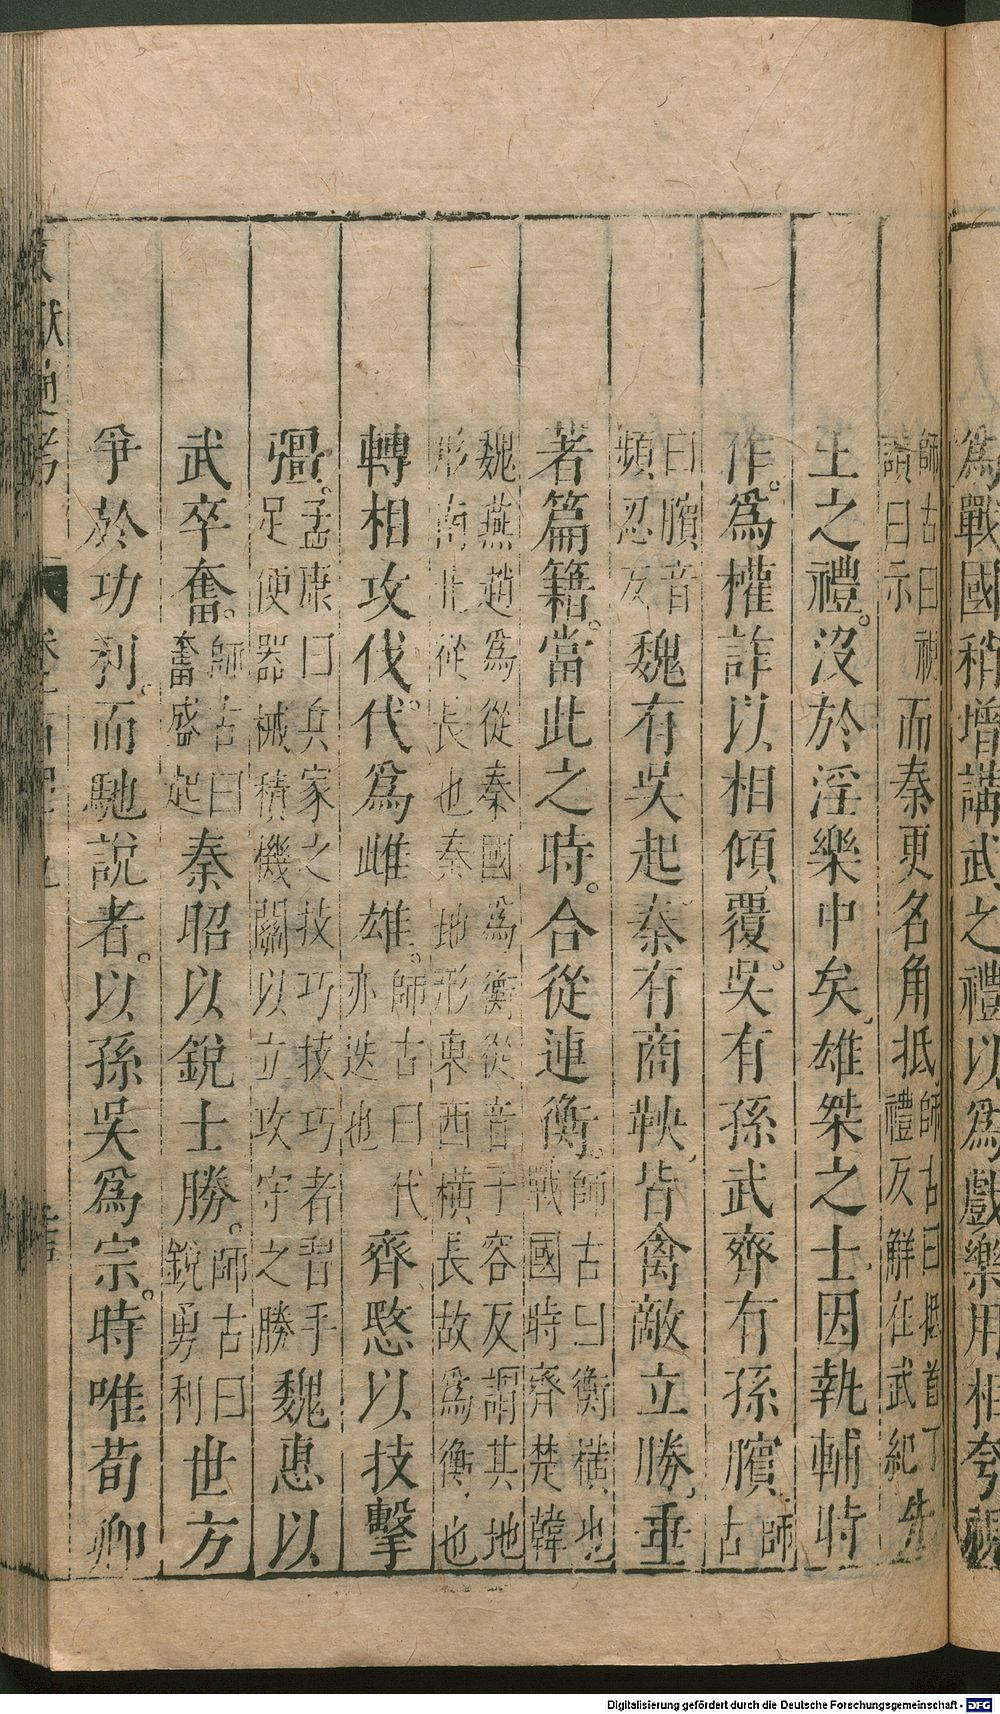 爲戰國稍增講武之禮以爲戲樂用相夸視
師古曰視讀曰示而秦更名角抵師古曰抵音丁禮反解在武紀先
王之禮。沒於淫樂中矣、雄桀之士。因執輔時
作。爲權詐以相傾覆。吳有孫武齊有孫臏、師古
曰臏音頻忍反魏有吳起、秦有商鞅、皆禽敵立勝、垂
著篇籍。當此之時。合從連衡。師古曰衡橫也戰國時齊楚韓
魏燕趙爲從秦國爲衡從音子容反謂其地形南北從長也秦地形東西橫長故爲衡也
轉相攻伐。代爲雌雄。師古曰代亦迭也齊愍以技擊
彊。孟康曰兵家之技巧技巧者習手足便器械積機關以立攻守之勝魏惠以
武卒奮。師古曰奮盛起秦昭以銳士勝。師古曰銳勇利世方
爭於功利。而馳說者。以孫吳爲宗。時唯荀卿
文獻通考
Digitalisierung gefördert durch die Deutsche Forschungsgemeinschaft - DFG